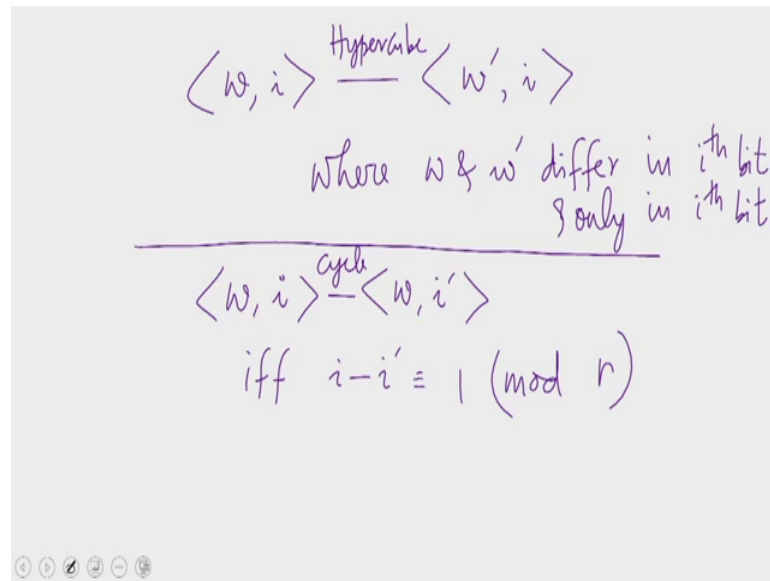 Hypercube
<w, i> — <w', i>
where w & w' differ in i^th bit
& only in i^th bit
cycle
<w, i> — <w, i'>
iff i - i' ≡ 1 (mod r)